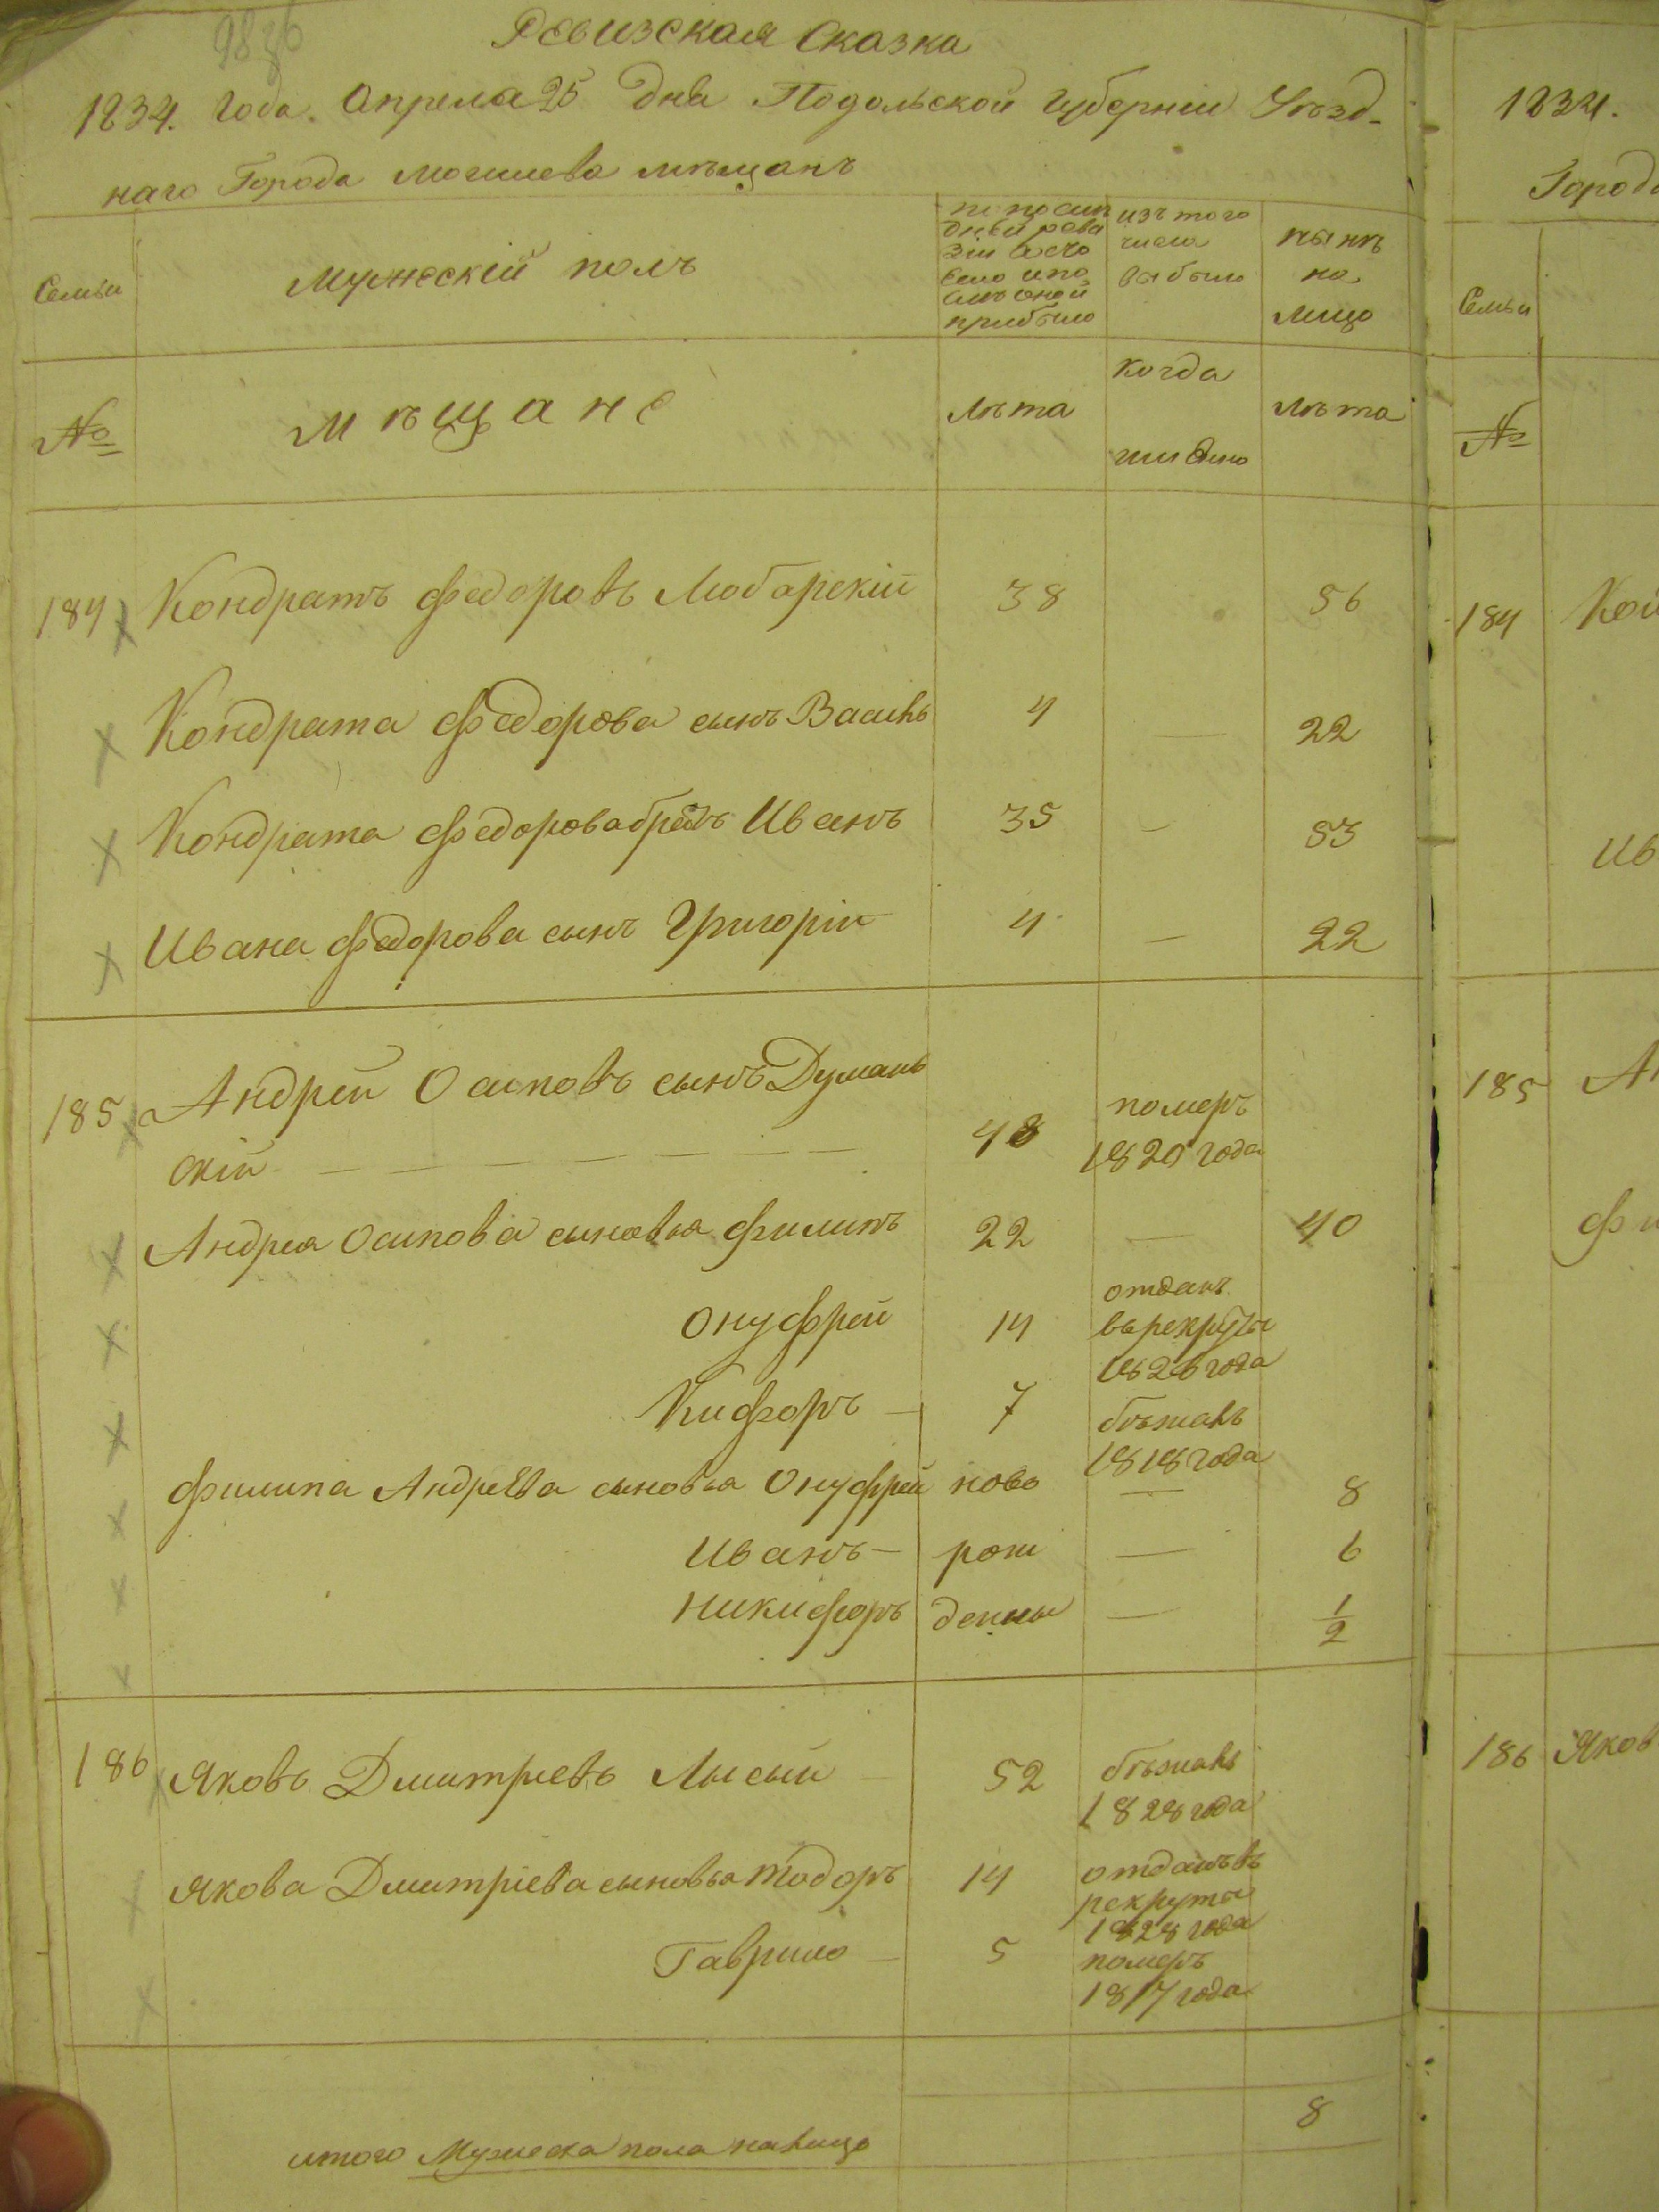 Ревизская Сказка
1834. Года. Апреля 25 дня Подольской Губернiи Уѣзд-
наго Города Могилева мѣщанъ
Семьи
Мужескiй полъ
по послѣ
дней реви
зiи состо
яло и по
слѣ оной
прибыло
изъ того
числа
выбыло
нынѣ
на
лицо
№
мѣщане
лѣта
когда
именно
лѣта
184 Кондратъ Федоровъ Любарскiй 38 56
Кондрата Федорова сынъ Василь 4 — 22
Кондрата Федорова братъ Иванъ 35 — 53
Ивана Федорова сынъ Григорiй 4 — 22
185 Андрей Осиповъ сынъ Думань
скiй — — — — — — — 48 померъ
1820 года
Андрея Осипова сыновья Филипъ 22 — 40
Онуфрей 14 отданъ
въ рекруты
1826 года
Кифоръ — 7 бѣжалъ
1818 года
Филипа Андреева сыновья Онуфрей ново — 8
Иванъ — рож — 6
Никифоръ денны — 1/2
186 Яковъ Дмитрiевъ Лысый 52 бѣжалъ
1828 года
Якова Дмитрiева сыновья Тодоръ 14 отданъ въ
рекруты
1828 года
Гаврило — 5 померъ
1817 года
итого Мужеска пола налицо 8
1834.
Город
Семьи
№
184
Ив
185 Ан
Фи
186 Яков